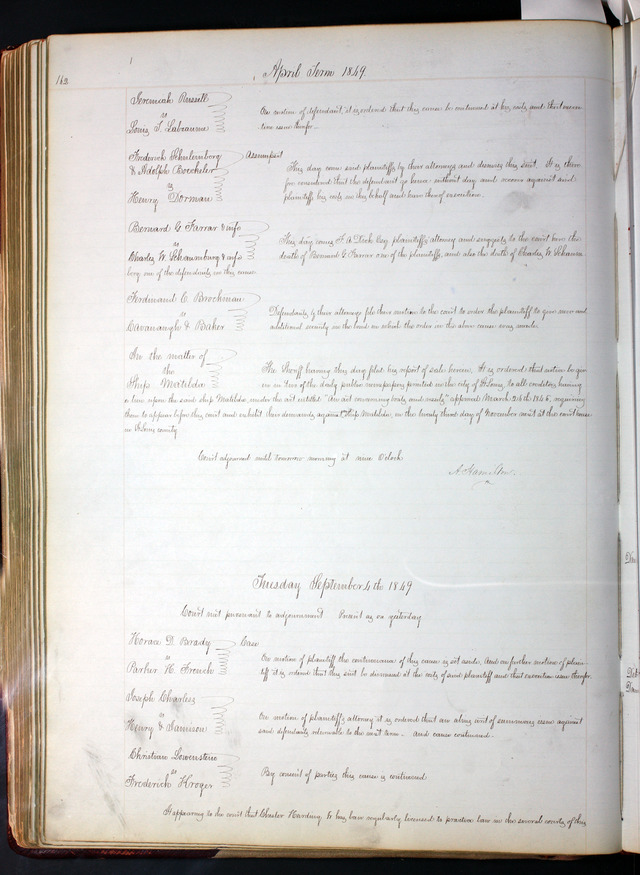 162
April Term 1849.
Jeremiah Russell
vs
Louis T. Labeaume
On motion of defendant, it is ordered that this cause be continued at his costs, and that execu-
tion issue therefor.
Frederick Schulenburg
& Adolph Boeckeler
vs
Henry Dorman
Assumpsit
This day come said plaintiffs by their attorney and dismiss this suit. It is there-
fore considered that the defendant go hence without day and recover against said
plaintiffs his costs in this behalf and have thereof execution.
Bernard G. Farrar & wife
vs
Charles W. Schaumburg & wife
This day comes F. A. Dick Esq plaintiffs attorney and suggests to the court here the
death of Bernard G Farrar one of the plaintiffs, and also the death of Charles W. Schaum-
berg one of the defendants in this cause.
Ferdinand C. Brockman
vs
Cavanaugh & Baker
Defendants by their attorney file their motion to the court to order the plaintiff to give new and
additional security in the bond on which the order in the above cause was made.
In the matter of
the
Ship Matilda
The Sheriff having this day filed his report of sale herein. It is ordered that notice be giv-
en in two of the daily public newspapers printed in the city of St Louis, to all creditors having
a lien upon the said ship Matilda, under the act entitled "An act concerning boats and vessels" approved March 24th 1845, requiring
them to appear before this court and exhibit their demands against ship Matilda, on the twenty third day of November next at the court house
in St Louis county
Court adjourned until tomorrow morning at nine O'clock
A Hamilton
Tuesday September 4th 1849
Court met pursuant to adjournment Present as on yesterday
Horace D. Brady
vs
Parker H. French
Case
On motion of plaintiff the continuance of this cause is set aside, And on further motion of plain-
tiff it is ordered that this suit be dismissed at the costs of said plaintiff and that execution issue therefor.
Joseph Charless
vs
Henry & Jamison
On motion of plaintiffs attorney it is ordered that an alias writ of summons issue against
said defendants returnable to the next term. And cause continued.
Christian Lowenstein
vs
Frederick Kroger
By consent of parties this cause is continued
It appearing to the court that Chester Harding Jr has been regularly licensed to practice law in the several courts of this